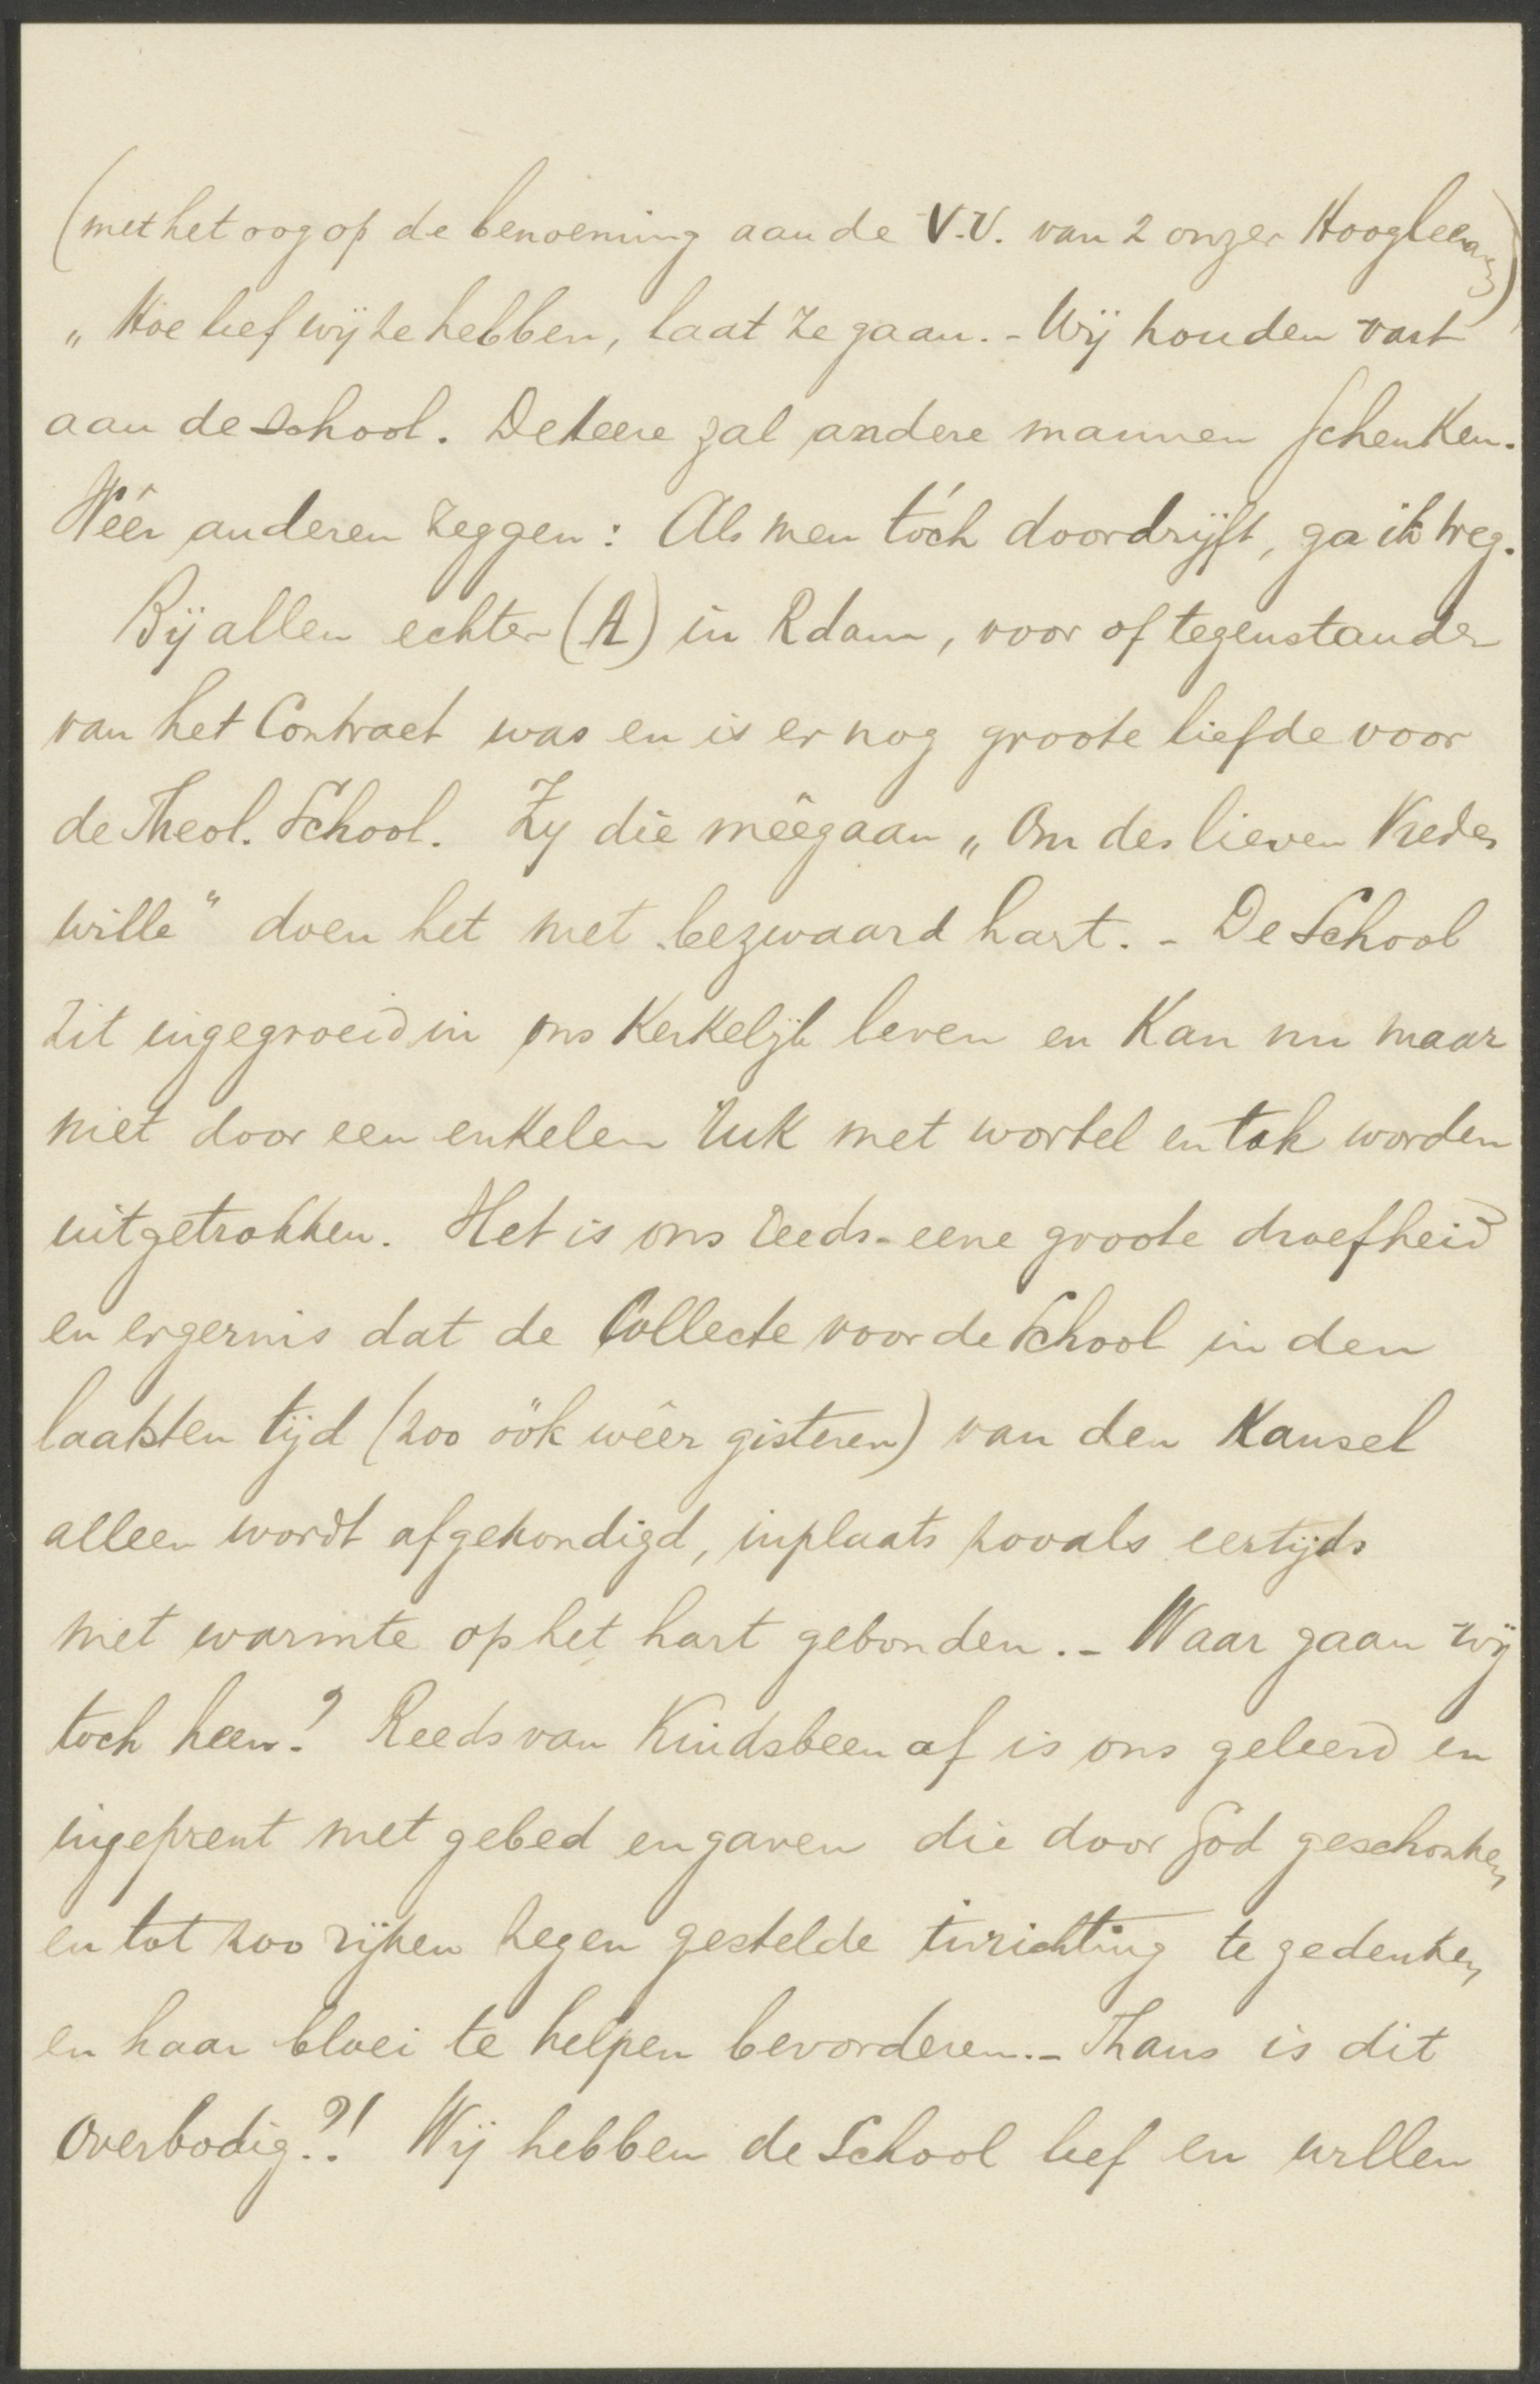 (met het oog op de benoeming aan de V.U. van 2 onzer Hoogleeraars)
„Hoe lief wij ze hebben, laat ze gaan. - Wij houden vast
aan de school. De Heere zal andere mannen schenken.
Wéér anderen zeggen: Als men tóch doordrijft, ga ik weg.
Bij allen echter (A) in Rdam, voor of tegenstander
van het Contract was en is er nog groote liefde voor
de Theol. School. Zy die mêegaan „Om des lieven Vredes
wille" doen het met bezwaard hart. - De School
zit ingegroeid in ons Kerkelijk leven en Kan nu maar
niet door een enkelen ruk met wortel en tak worden
uitgetrokken. Het is ons reeds - eene groote droefheid
en ergernis dat de Collecte voor de School in den
laatsten tijd (zoo óók wéêr gisteren) van den Kansel
alleen wordt afgekondigd, inplaats zooals eertijds
met warmte op het hart gebonden. - Waar gaan wij
toch heen? Reeds van Kindsbeen af is ons geleerd en
ingeprent met gebed en gaven die door God geschonken
en tot zoo rijken zegen gestelde inrichting te gedenken
en haar bloei te helpen bevorderen. - Thans is dit
Overbodig?! Wij hebben de School lief en willen